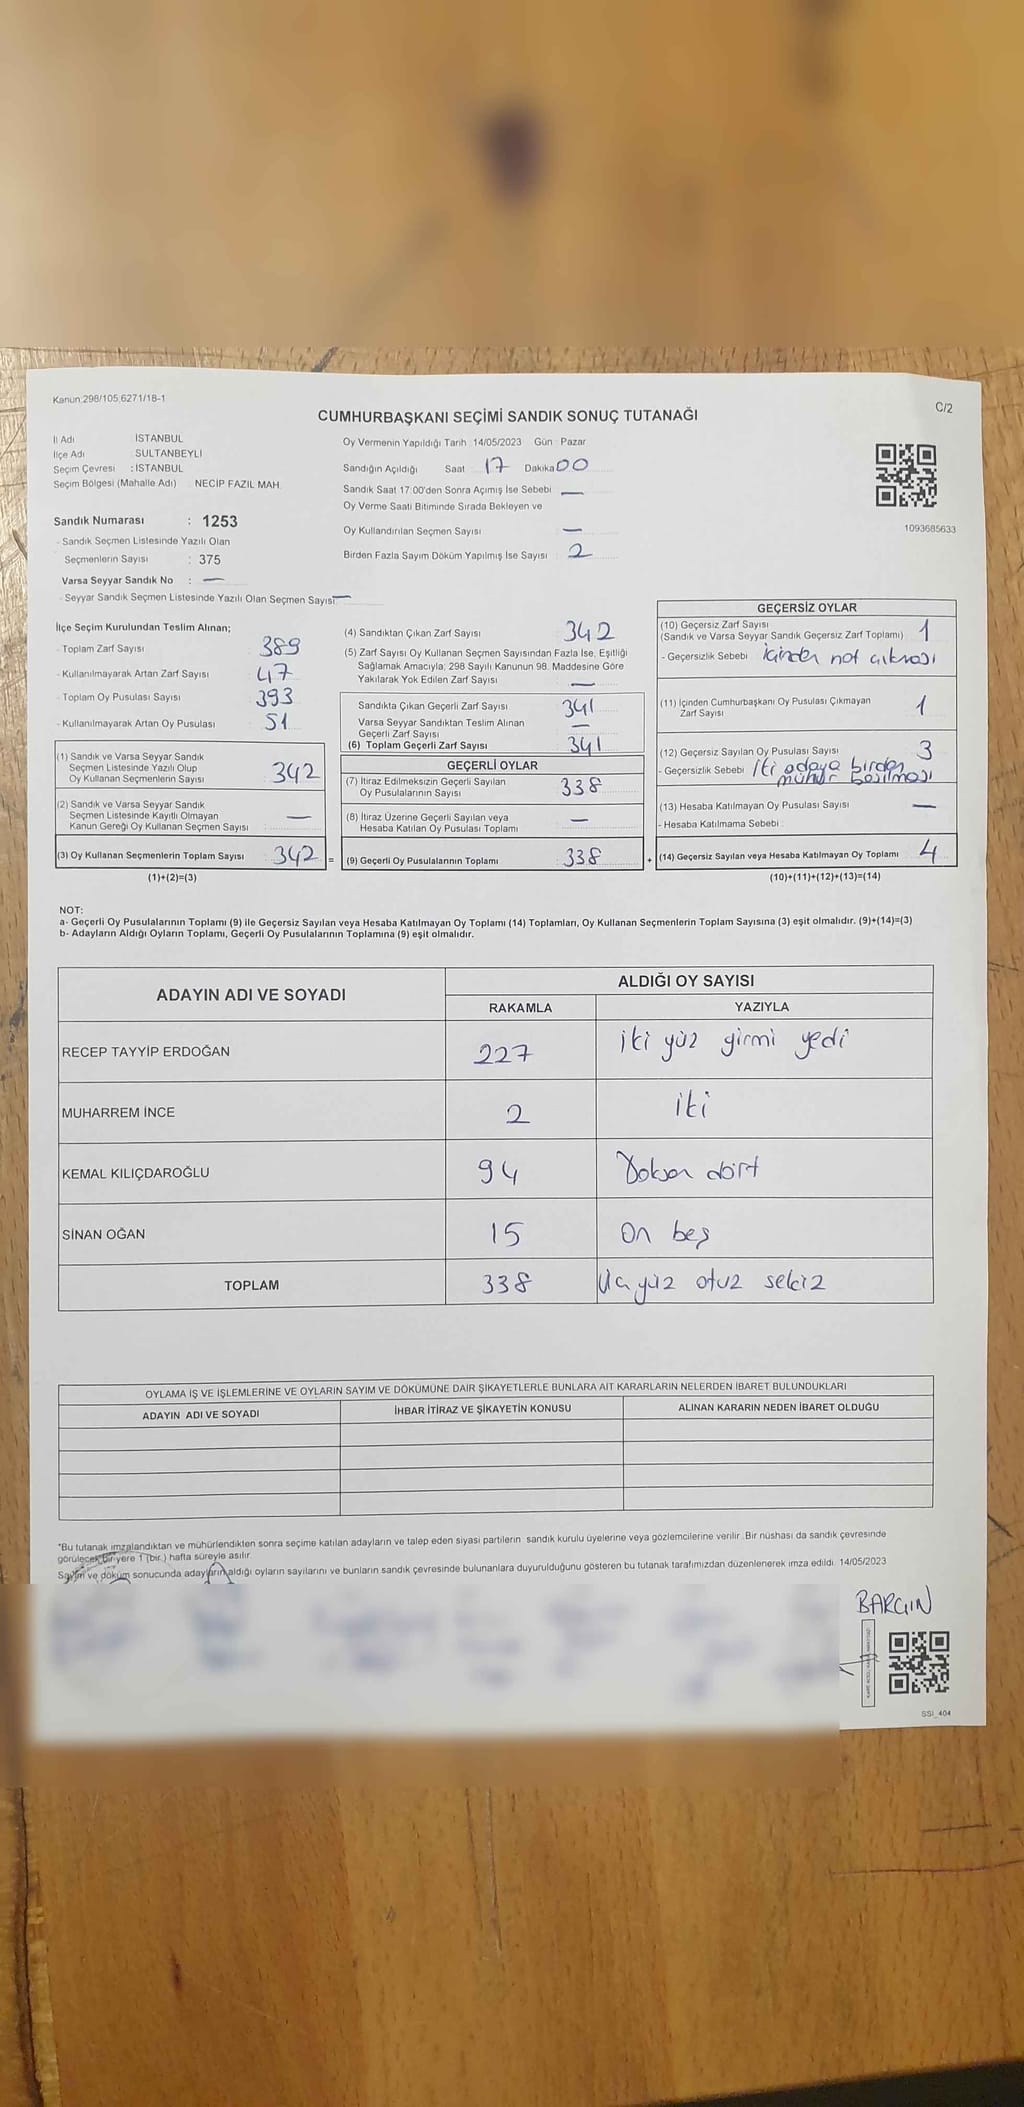 Kanun:298/105,6271/18-1
C/2
CUMHURBAŞKANI SEÇİMİ SANDIK SONUÇ TUTANAĞI
İl Adı İSTANBUL
İlçe Adı SULTANBEYLİ
Seçim Çevresi : İSTANBUL
Seçim Bölgesi (Mahalle Adı) NECİP FAZIL MAH.
Sandık Numarası : 1253
- Sandık Seçmen Listesinde Yazılı Olan
Seçmenlerin Sayısı : 375
Varsa Seyyar Sandık No : —
- Seyyar Sandık Seçmen Listesinde Yazılı Olan Seçmen Sayısı: —
Oy Vermenin Yapıldığı Tarih : 14/05/2023 Gün : Pazar
Sandığın Açıldığı Saat 17 Dakika 00
Sandık Saat 17:00'den Sonra Açımış İse Sebebi —
Oy Verme Saati Bitiminde Sırada Bekleyen ve
Oy Kullandırılan Seçmen Sayısı —
Birden Fazla Sayım Döküm Yapılmış İse Sayısı : 2
1093685633
İlçe Seçim Kurulundan Teslim Alınan;
- Toplam Zarf Sayısı 389
- Kullanılmayarak Artan Zarf Sayısı 47
- Toplam Oy Pusulası Sayısı 393
- Kullanılmayarak Artan Oy Pusulası 51
(1) Sandık ve Varsa Seyyar Sandık
Seçmen Listesinde Yazılı Olup
Oy Kullanan Seçmenlerin Sayısı 342
(2) Sandık ve Varsa Seyyar Sandık
Seçmen Listesinde Kayıtlı Olmayan
Kanun Gereği Oy Kullanan Seçmen Sayısı —
(3) Oy Kullanan Seçmenlerin Toplam Sayısı 342 =
(1)+(2)=(3)
(4) Sandıktan Çıkan Zarf Sayısı 342
(5) Zarf Sayısı Oy Kullanan Seçmen Sayısından Fazla İse, Eşitliği
Sağlamak Amacıyla; 298 Sayılı Kanunun 98. Maddesine Göre
Yakılarak Yok Edilen Zarf Sayısı —
Sandıkta Çıkan Geçerli Zarf Sayısı 341
Varsa Seyyar Sandıktan Teslim Alınan
Geçerli Zarf Sayısı —
(6) Toplam Geçerli Zarf Sayısı 341
GEÇERLİ OYLAR
(7) İtiraz Edilmeksizin Geçerli Sayılan
Oy Pusulalarının Sayısı 338
(8) İtiraz Üzerine Geçerli Sayılan veya
Hesaba Katılan Oy Pusulası Toplamı —
(9) Geçerli Oy Pusulalarının Toplamı 338 +
GEÇERSİZ OYLAR
(10) Geçersiz Zarf Sayısı
(Sandık ve Varsa Seyyar Sandık Geçersiz Zarf Toplamı) 1
- Geçersizlik Sebebi İçinden not çıkması
(11) İçinden Cumhurbaşkanı Oy Pusulası Çıkmayan
Zarf Sayısı 1
(12) Geçersiz Sayılan Oy Pusulası Sayısı 3
- Geçersizlik Sebebi İki adaya birden
mühür basılması
(13) Hesaba Katılmayan Oy Pusulası Sayısı —
- Hesaba Katılmama Sebebi
(14) Geçersiz Sayılan veya Hesaba Katılmayan Oy Toplamı 4
(10)+(11)+(12)+(13)=(14)
NOT:
a- Geçerli Oy Pusulalarının Toplamı (9) ile Geçersiz Sayılan veya Hesaba Katılmayan Oy Toplamı (14) Toplamları, Oy Kullanan Seçmenlerin Toplam Sayısına (3) eşit olmalıdır. (9)+(14)=(3)
b- Adayların Aldığı Oyların Toplamı, Geçerli Oy Pusulalarının Toplamına (9) eşit olmalıdır.
ADAYIN ADI VE SOYADI ALDIĞI OY SAYISI
RAKAMLA YAZIYLA
RECEP TAYYİP ERDOĞAN 227 iki yüz girmi yedi
MUHARREM İNCE 2 iki
KEMAL KILIÇDAROĞLU 94 Doksan dört
SİNAN OĞAN 15 On beş
TOPLAM 338 Üç yüz otuz sekiz
OYLAMA İŞ VE İŞLEMLERİNE VE OYLARIN SAYIM VE DÖKÜMÜNE DAİR ŞİKAYETLERLE BUNLARA AİT KARARLARIN NELERDEN İBARET BULUNDUKLARI
ADAYIN ADI VE SOYADI İHBAR İTİRAZ VE ŞİKAYETİN KONUSU ALINAN KARARIN NEDEN İBARET OLDUĞU
*Bu tutanak imzalandıktan ve mühürlendikten sonra seçime katılan adayların ve talep eden siyasi partilerin sandık kurulu üyelerine veya gözlemcilerine verilir. Bir nüshası da sandık çevresinde
görülecek bir yere 1 (bir) hafta süreyle asılır.
Sayım ve döküm sonucunda adayların aldığı oyların sayılarını ve bunların sandık çevresinde bulunanlara duyurulduğunu gösteren bu tutanak tarafımızdan düzenlenerek imza edildi. 14/05/2023
BARGIN
SSI_404